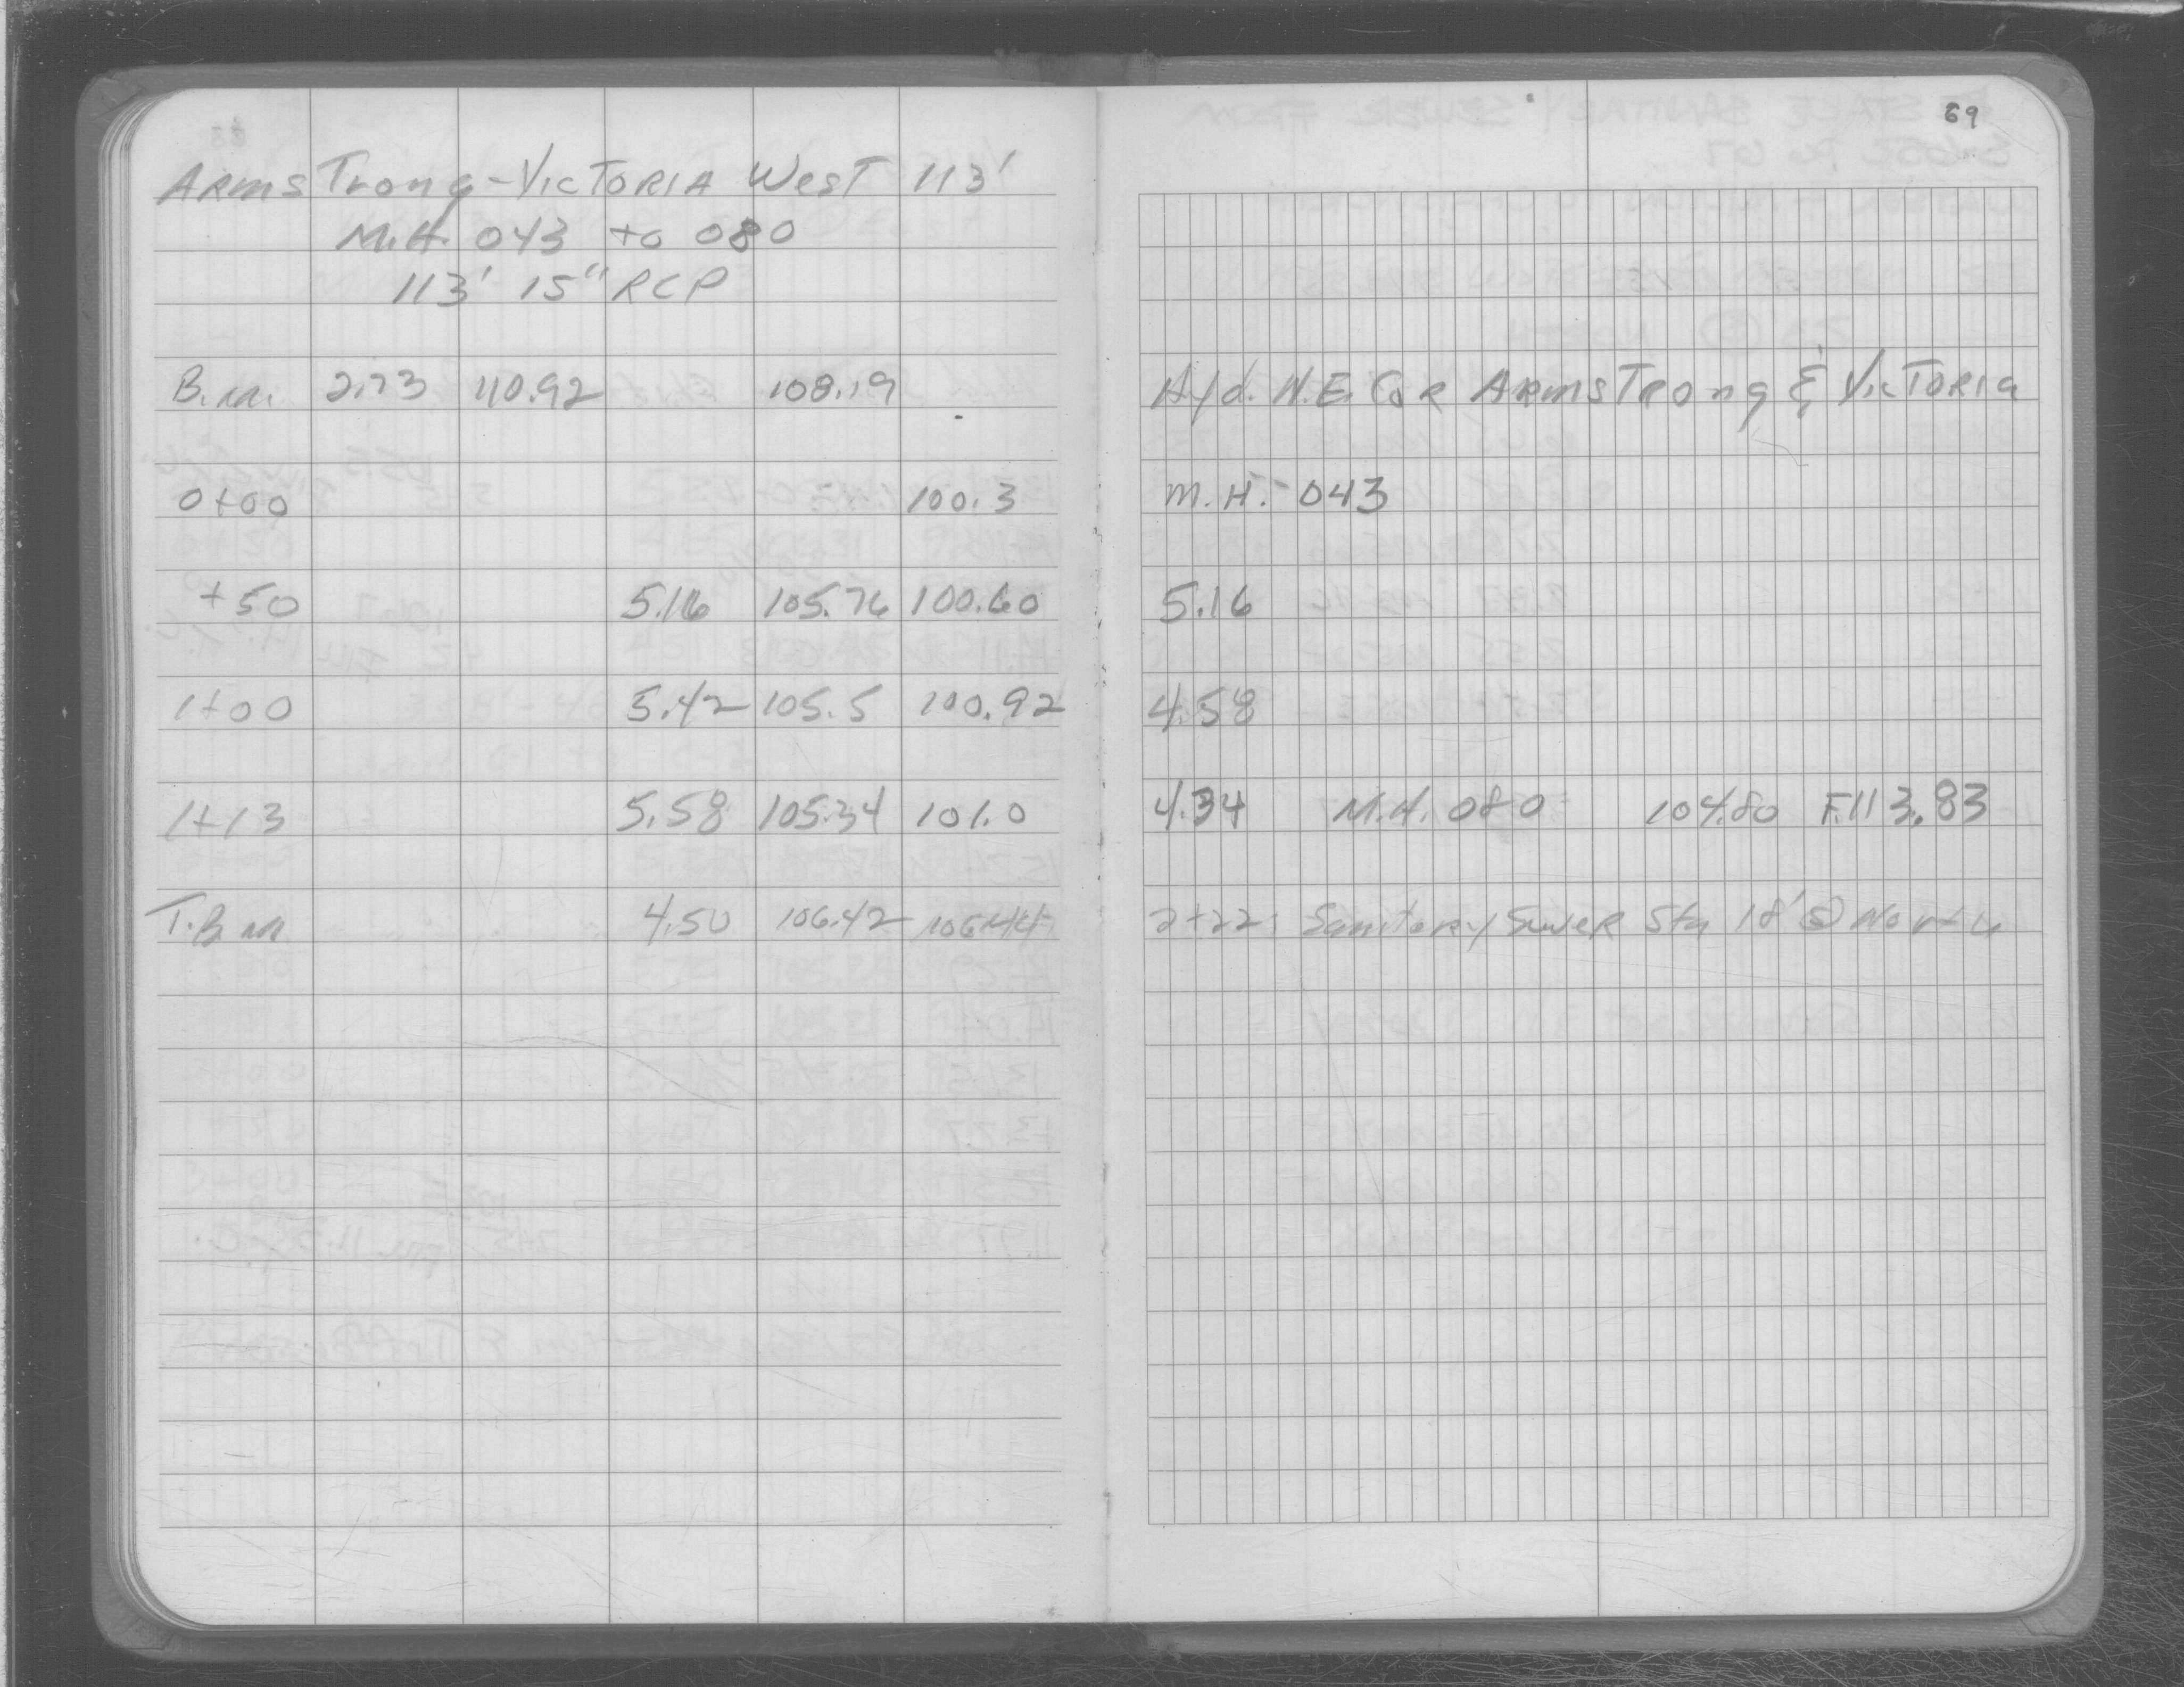 69
ArmsTrong-VicTORIA WesT 113'
M.H. 043 to 080
113' 15" RCP
B.M. 2.73 110.92 108.19 Hyd. N.E. Cor ArmsTrong & VicToria
0+00 100.3 M.H. - 043
+50 5.16 105.76 100.60 5.16
1+00 5.42 105.5 100.92 4.58
1+13 5.58 105.34 101.0 4.34 M.H. 080 104.80 F.113.83
T.B.M 4.50 106.42 106.44 2+22 Sanitary Sewer Sta 18' North